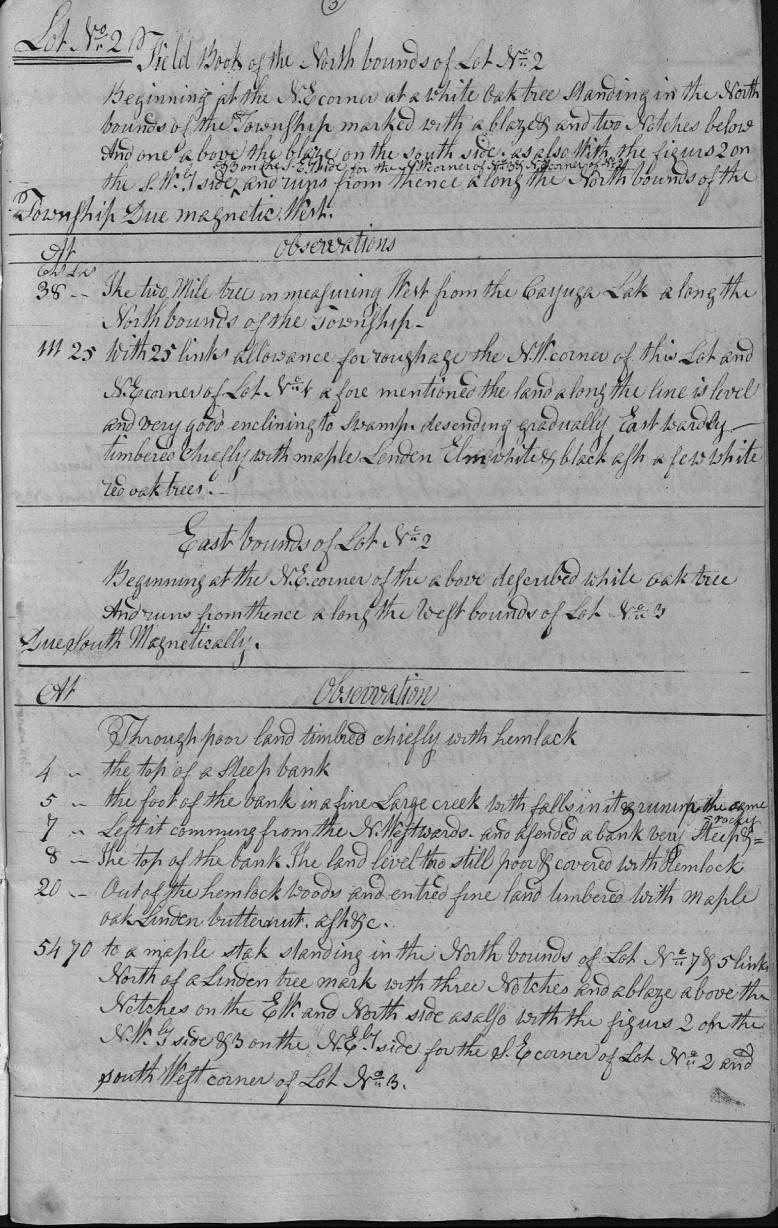 3
Lot No. 2
Field Book of the North bounds of Lot No. 2
Beginning at the N.E corner at a white oak tree standing in the North
bounds of the Township marked with a blaze & and two Notches below
And one above the blaze on the south side, as also with the figurs 2 on
& 3 on the S.E.ly side for the corner of No. 3 & N.E corner of No. 2
the S.W.ly side ^ and runs from thence along the North bounds of the
Township Due magnetic West.
At Observations
Chs Lks
38 -- The two Mile tree in measuring West from the Cayuga Lak along the
North bounds of the Township -
111 25 With 25 links allowance for roughage the N.W. corner of this Lot and
N.E corner of Lot No. 1 afore mentioned the land along the line is level
and very good enclining to swamp. desending gradually Eastwardly -
timbered chiefly with maple Lenden Elm white & black ash a few white
red oak trees. -
East bounds of Lot No. 2
Beginning at the N.E. corner of the above described white oak tree
And runs from thence along the West bounds of Lot No. 3
Due South Magnetically.
At Observation
Through poor land timbred chiefly with hemlock
4 -- the top of a steep bank
5 -- the foot of the bank in a fine Large creek with falls in it & run up the same
7 -- Left it comming from the N. Westwards. and asended a bank very steep & =
= rockey
8 -- The top of the bank The land level two still poor & covered with Hemlock
20 -- Out of the hemlock woods and entred fine land timbered with maple
oak Linden butternut. ash &c.
54 70 to a maple stak standing in the North bounds of Lot No. 7 & 5 links
North of a Linden tree mark with three Notches and a blaze above the
Notches on the E W. and North side as also with the figurs 2 on the
N.W.ly side & 3 on the N.E.ly side for the S.E corner of Lot No. 2 and
south West corner of Lot No. 3.